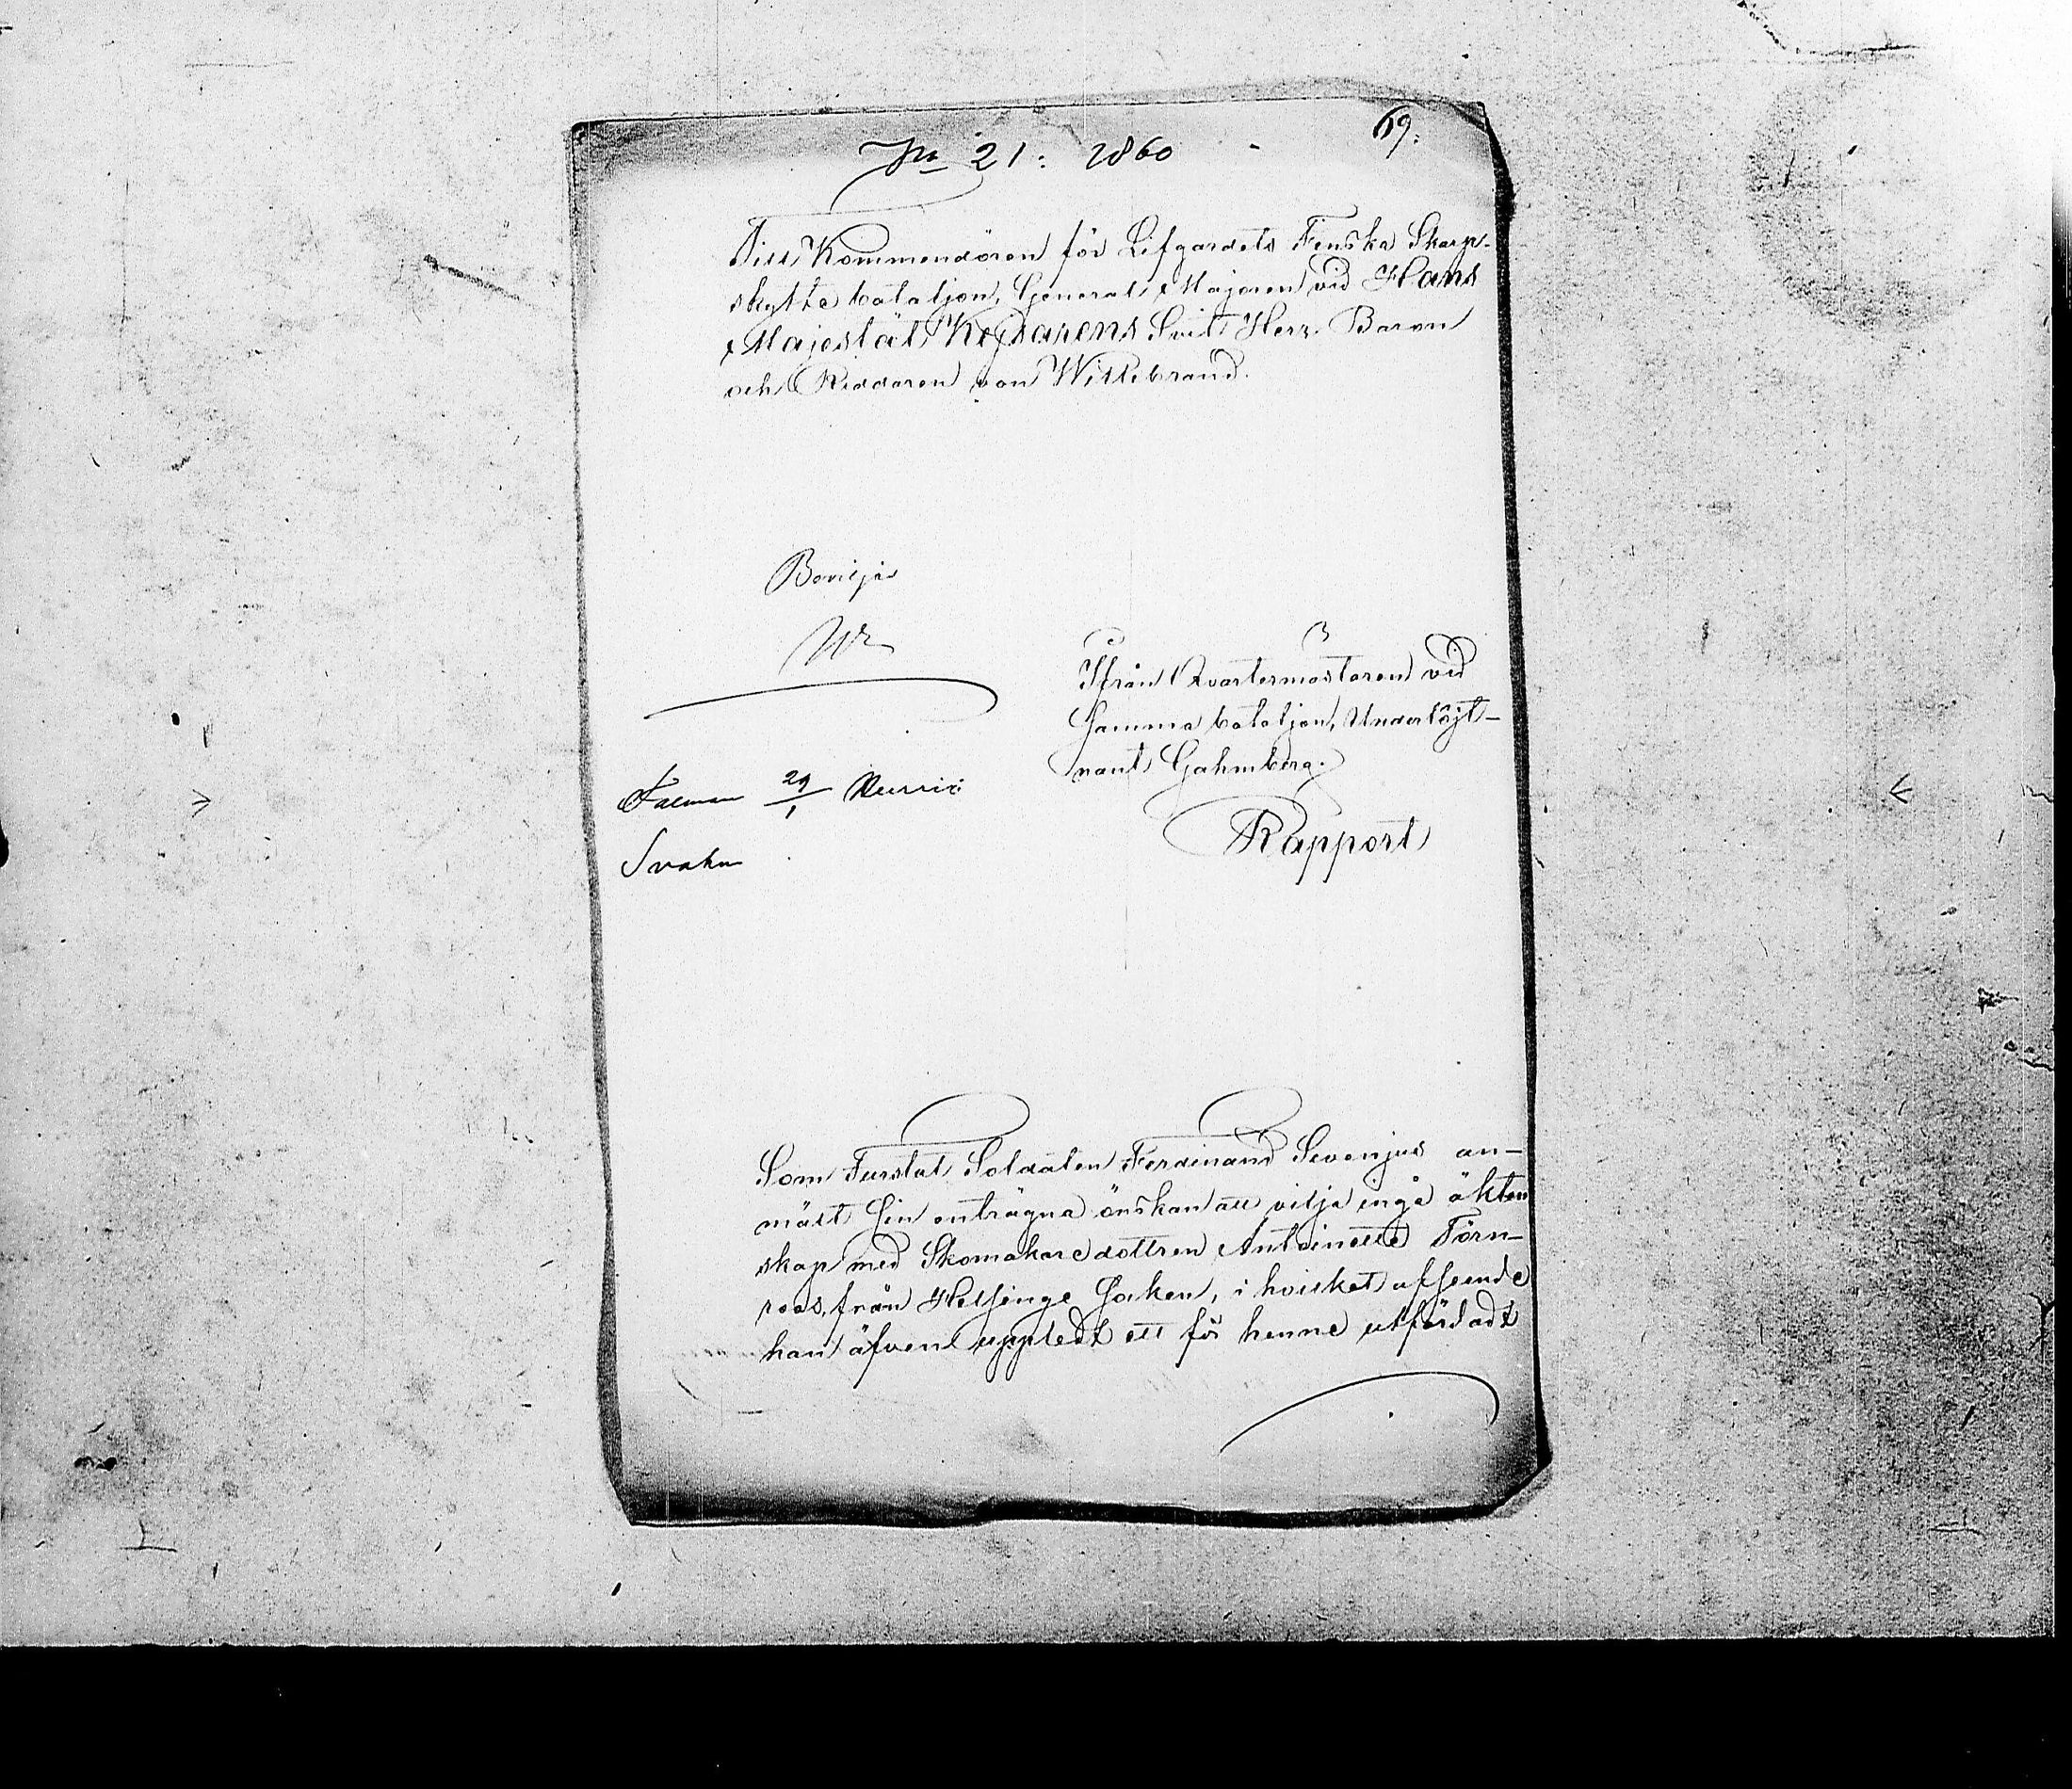 No 21: 1860
69.
Till Kommendören för Lifgardets Finska Skarp-
skytte bataljon, General Majoren vid Hans
Majestät Kejsarens Svit Herr Baron
och Riddaren von Willebrand.
Beviljas
Ifrån Qvartermästaren vid
samma bataljon, Underlöjt-
nant Gahmberg.
29/1
Svahn
Rapport
Som Furstat Soldaten Ferdinand Sevenjus an-
mält sin enträgna önskan att vilja ingå äkten
skap med Skomakaredottren Antoinette Törn-
roos, från Helsinge Socken, i hvilket afseende
han äfven uppledt ett för henne utfärdadt